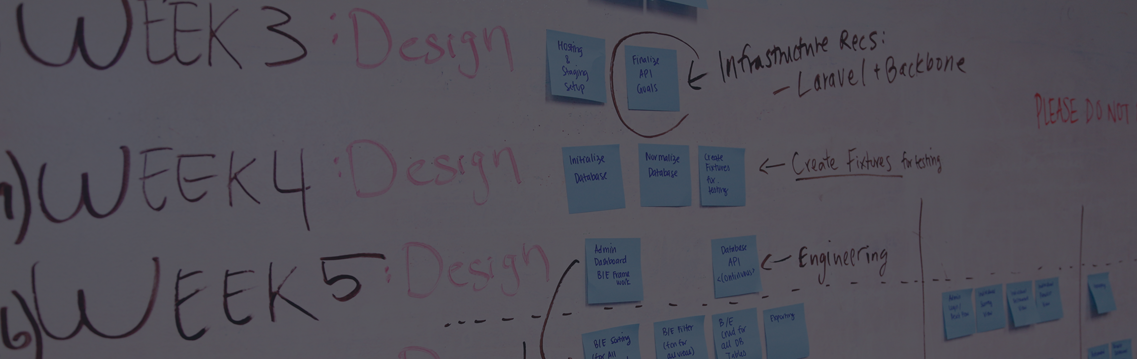 WEEK 3 : Design
Hosting
&
Staging
Setup
Finalize
API
Goals
← Infrastructure Recs:
- Laravel + Backbone
PLEASE DO NOT
WEEK 4 : Design
Initialize
Database
Normalize
Database
Create
Fixtures
for
testing
← Create Fixtures for testing
6) WEEK 5 : Design
Admin
Dashboard
B/E Frame
work
Database
API
(continuous)
← Engineering
B/E Sorting
(for All
B/E Filter
(con for
B/E
Load for
all DB
Tables
Exporting